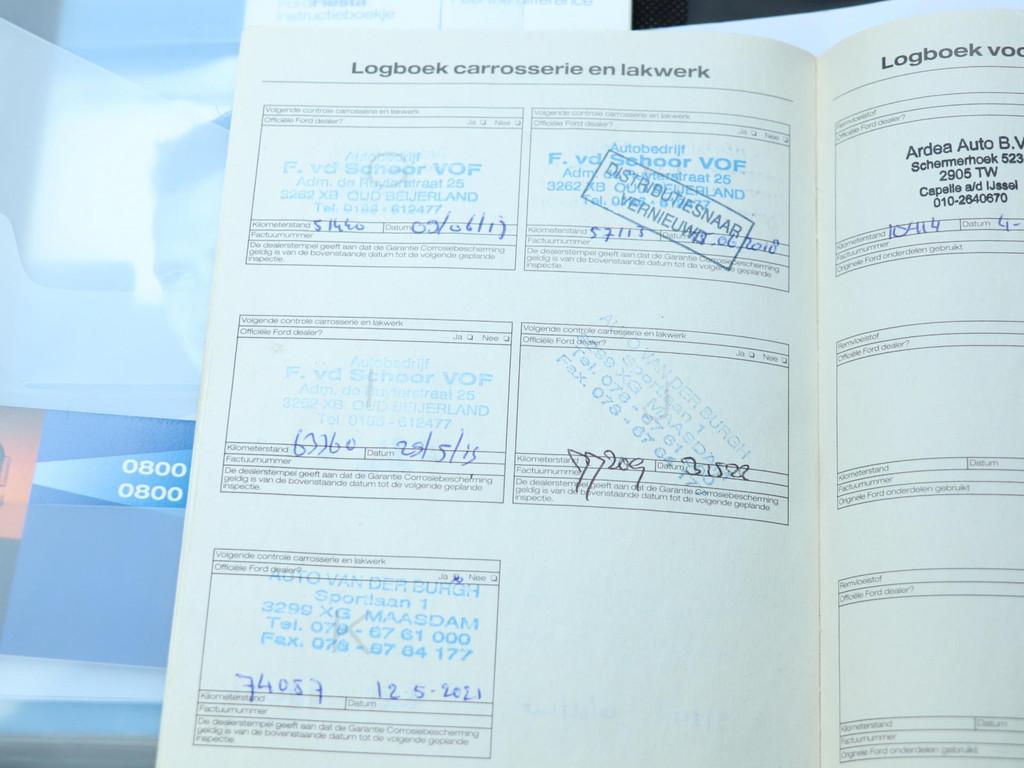 Instructieboekje
Logboek carrosserie en lakwerk
Volgende controle carrosserie en lakwerk
Officiële Ford dealer? Ja Nee
Autobedrijf
F. vd Schoor VOF
Adm. de Ruyterstraat 25
3262 XB OUD BEIJERLAND
Tel. 0186 - 612477
Kilometerstand 51440 Datum 09/06/17
Factuurnummer
De dealerstempel geeft aan dat de Garantie Corrosiebescherming
geldig is van de bovenstaande datum tot de volgende geplande
inspectie.
Volgende controle carrosserie en lakwerk
Officiële Ford dealer? Ja Nee
Autobedrijf
F. vd Schoor VOF
Adm. de Ruyterstraat 25
3262 XB OUD BEIJERLAND
DISTRIBUTIESNAAR
VERNIEUWD
Kilometerstand 57113 Datum 06 2018
Factuurnummer
De dealerstempel geeft aan dat de Garantie Corrosiebescherming
geldig is van de bovenstaande datum tot de volgende geplande
inspectie.
Volgende controle carrosserie en lakwerk
Officiële Ford dealer? Ja Nee
Autobedrijf
F. vd Schoor VOF
Adm. de Ruyterstraat 25
3262 XB OUD BEIJERLAND
Tel. 0186 - 612477
Kilometerstand 63760 Datum 29/5/19
Factuurnummer
De dealerstempel geeft aan dat de Garantie Corrosiebescherming
geldig is van de bovenstaande datum tot de volgende geplande
inspectie.
Volgende controle carrosserie en lakwerk
Officiële Ford dealer? Ja Nee
AUTO VAN DER BURGH
Sportlaan 1
3299 XG MAASDAM
Tel. 078 - 67 61
Fax. 078 - 67
Kilometerstand 77209 Datum 31522
Factuurnummer
De dealerstempel geeft aan dat de Garantie Corrosiebescherming
geldig is van de bovenstaande datum tot de volgende geplande
inspectie.
Volgende controle carrosserie en lakwerk
Officiële Ford dealer? Ja Nee
AUTO VAN DER BURGH
Sportlaan 1
3299 XG MAASDAM
Tel. 078 - 67 61 000
Fax. 078 - 67 64 177
74087 12-5-2021
Kilometerstand Datum
Factuurnummer
De dealerstempel geeft aan dat de Garantie Corrosiebescherming
geldig is van de bovenstaande datum tot de volgende geplande
inspectie.
0800
0800
Logboek voo
Remvloeistof
Officiële Ford dealer?
Ardea Auto B.V
Schermerhoek 523
2905 TW
Capelle a/d IJssel
010-2640670
Kilometerstand Datum 4-
Factuurnummer
Originele Ford onderdelen gebruikt
Remvloeistof
Officiële Ford dealer?
Kilometerstand Datum
Factuurnummer
Originele Ford onderdelen gebruikt
Remvloeistof
Officiële Ford dealer?
Kilometerstand Datum
Factuurnummer
Originele Ford onderdelen gebruikt